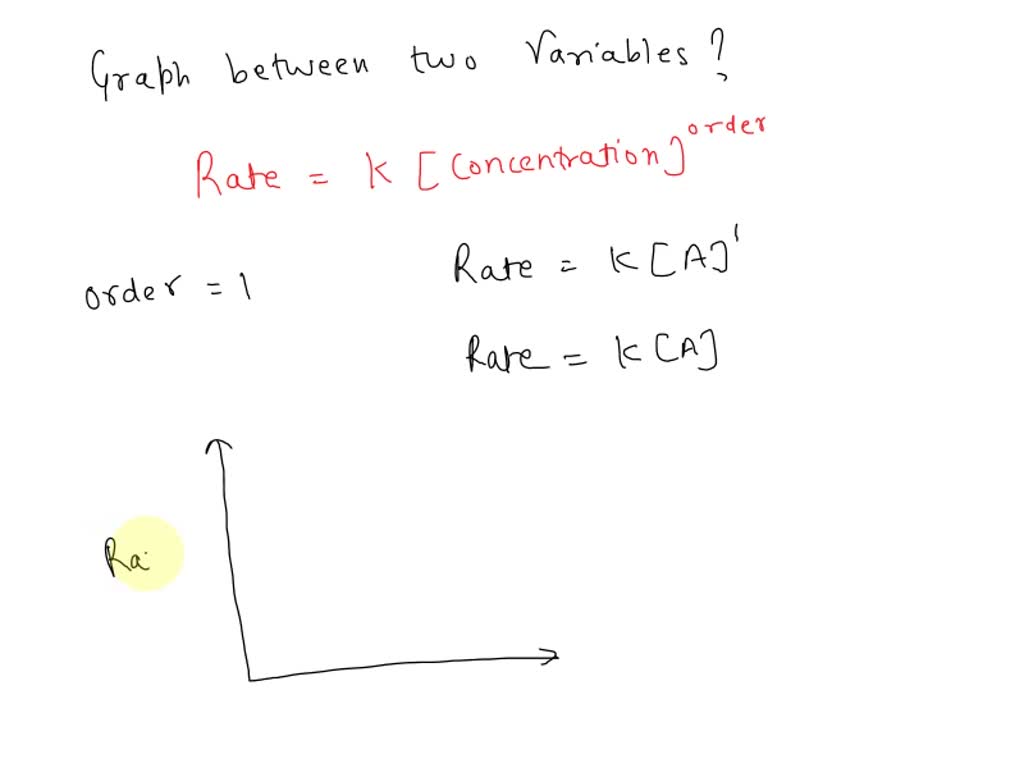 Graph between two Variables ?
Rate = K [Concentration]^order
order = 1
Rate = K [A]^1
Rate = K [A]
Ra